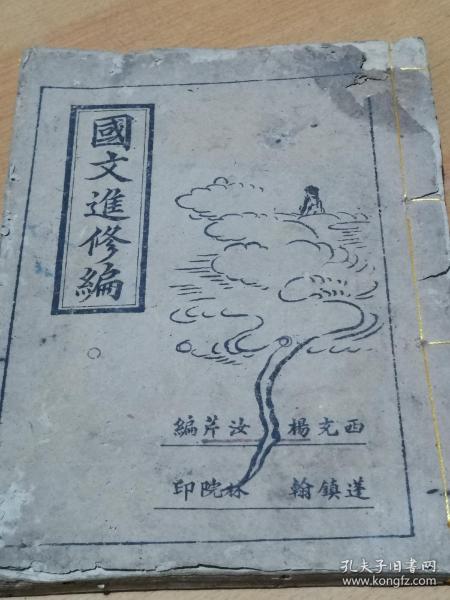 國文進修編
西充楊汝芹編
蓬鎮翰林院印
孔夫子旧书网
www.kongfz.com